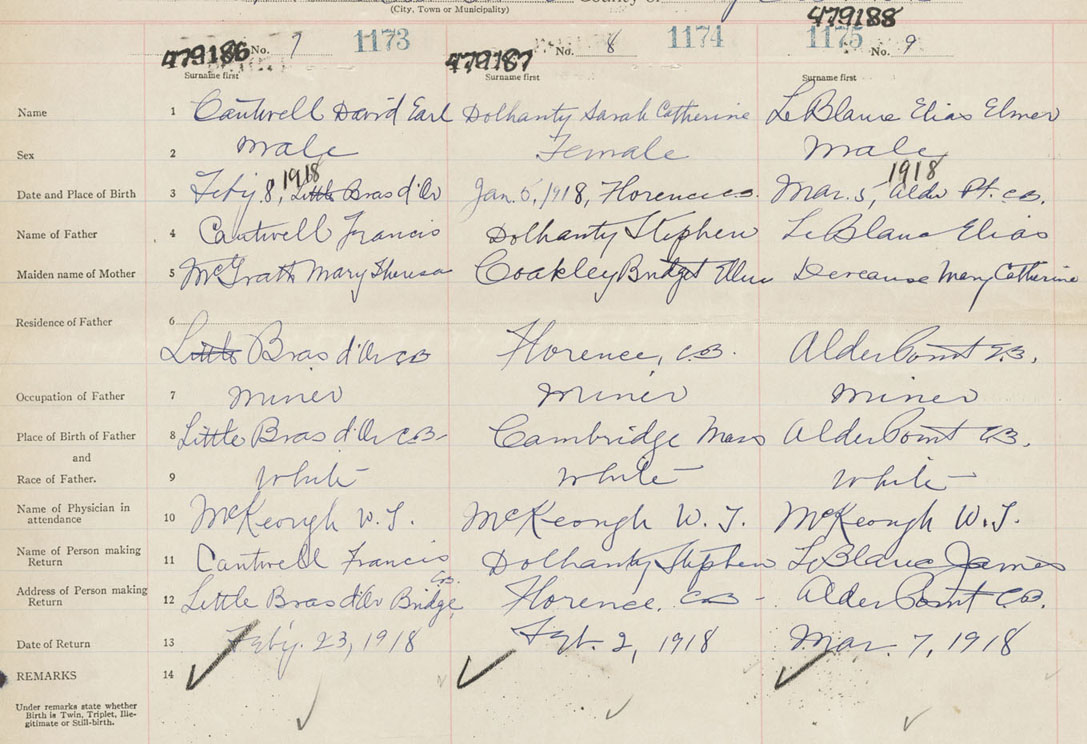 (City, Town or Municipality) County of
479186 No. 7 1173 479187 No. 8 1174 479188 1175 No. 9
Surname first Surname first Surname first
Name 1 Cantwell David Earl Dolhanty Sarah Catherine LeBlanc Elias Elmer
Sex 2 Male Female Male
Date and Place of Birth 3 Feb'y. 8, 1918 Little Bras d'Or Jan. 5, 1918, Florence C.B. Mar. 5, 1918 Alder Pt. C.B.
Name of Father 4 Cantwell Francis Dolhanty Stephen LeBlanc Elias
Maiden name of Mother 5 McGrath Mary Theresa Coakley Bridget Ellen Mary Catherine
Residence of Father 6
Little Bras d'Or CB Florence, C.B. Alder Point C.B.
Occupation of Father 7 Miner Miner Miner
Place of Birth of Father 8 Little Bras d'Or CB Cambridge Mass Alder Point C.B.
and
Race of Father. 9 White White White
Name of Physician in attendance 10 McKeough W. J. McKeough W. J. McKeough W. J.
Name of Person making Return 11 Cantwell Francis Dolhanty Stephen LeBlanc James
Address of Person making Return 12 Little Bras d'Or Bridge C.B. Florence. CB - Alder Point C.B.
Date of Return 13 Feb'y. 23, 1918 2, 1918 Mar. 7, 1918
REMARKS 14
Under remarks state whether
Birth is Twin, Triplet, Ille-
gitimate or Still-birth.